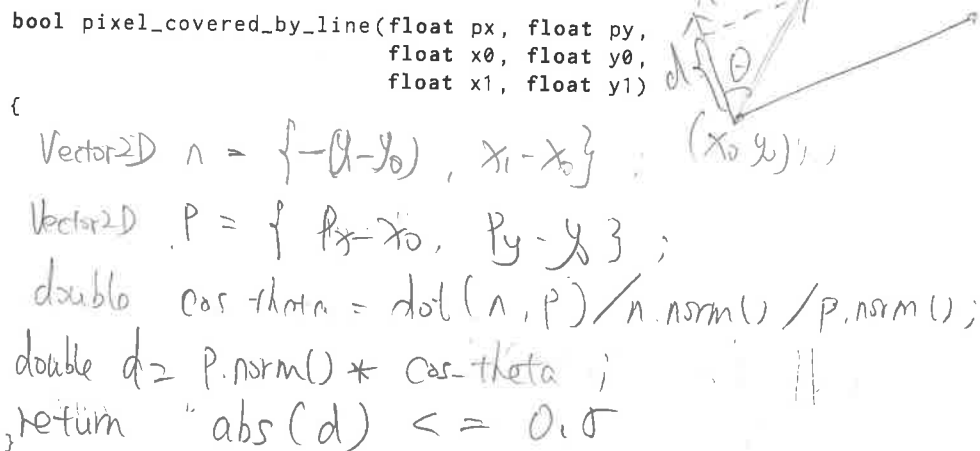 bool pixel_covered_by_line(float px, float py,
float x0, float y0,
float x1, float y1)
d{ θ
(x₀ y₀)
{
Vector2D n = {-(y-y₀), x₁-x₀};
Vector2D P = { Px-x₀, Py-y₀ };
double cos theta = dot(n, p)/n.norm()/p.norm();
double d= P.norm() * cos-theta ;
return abs(d) <= 0.5
}